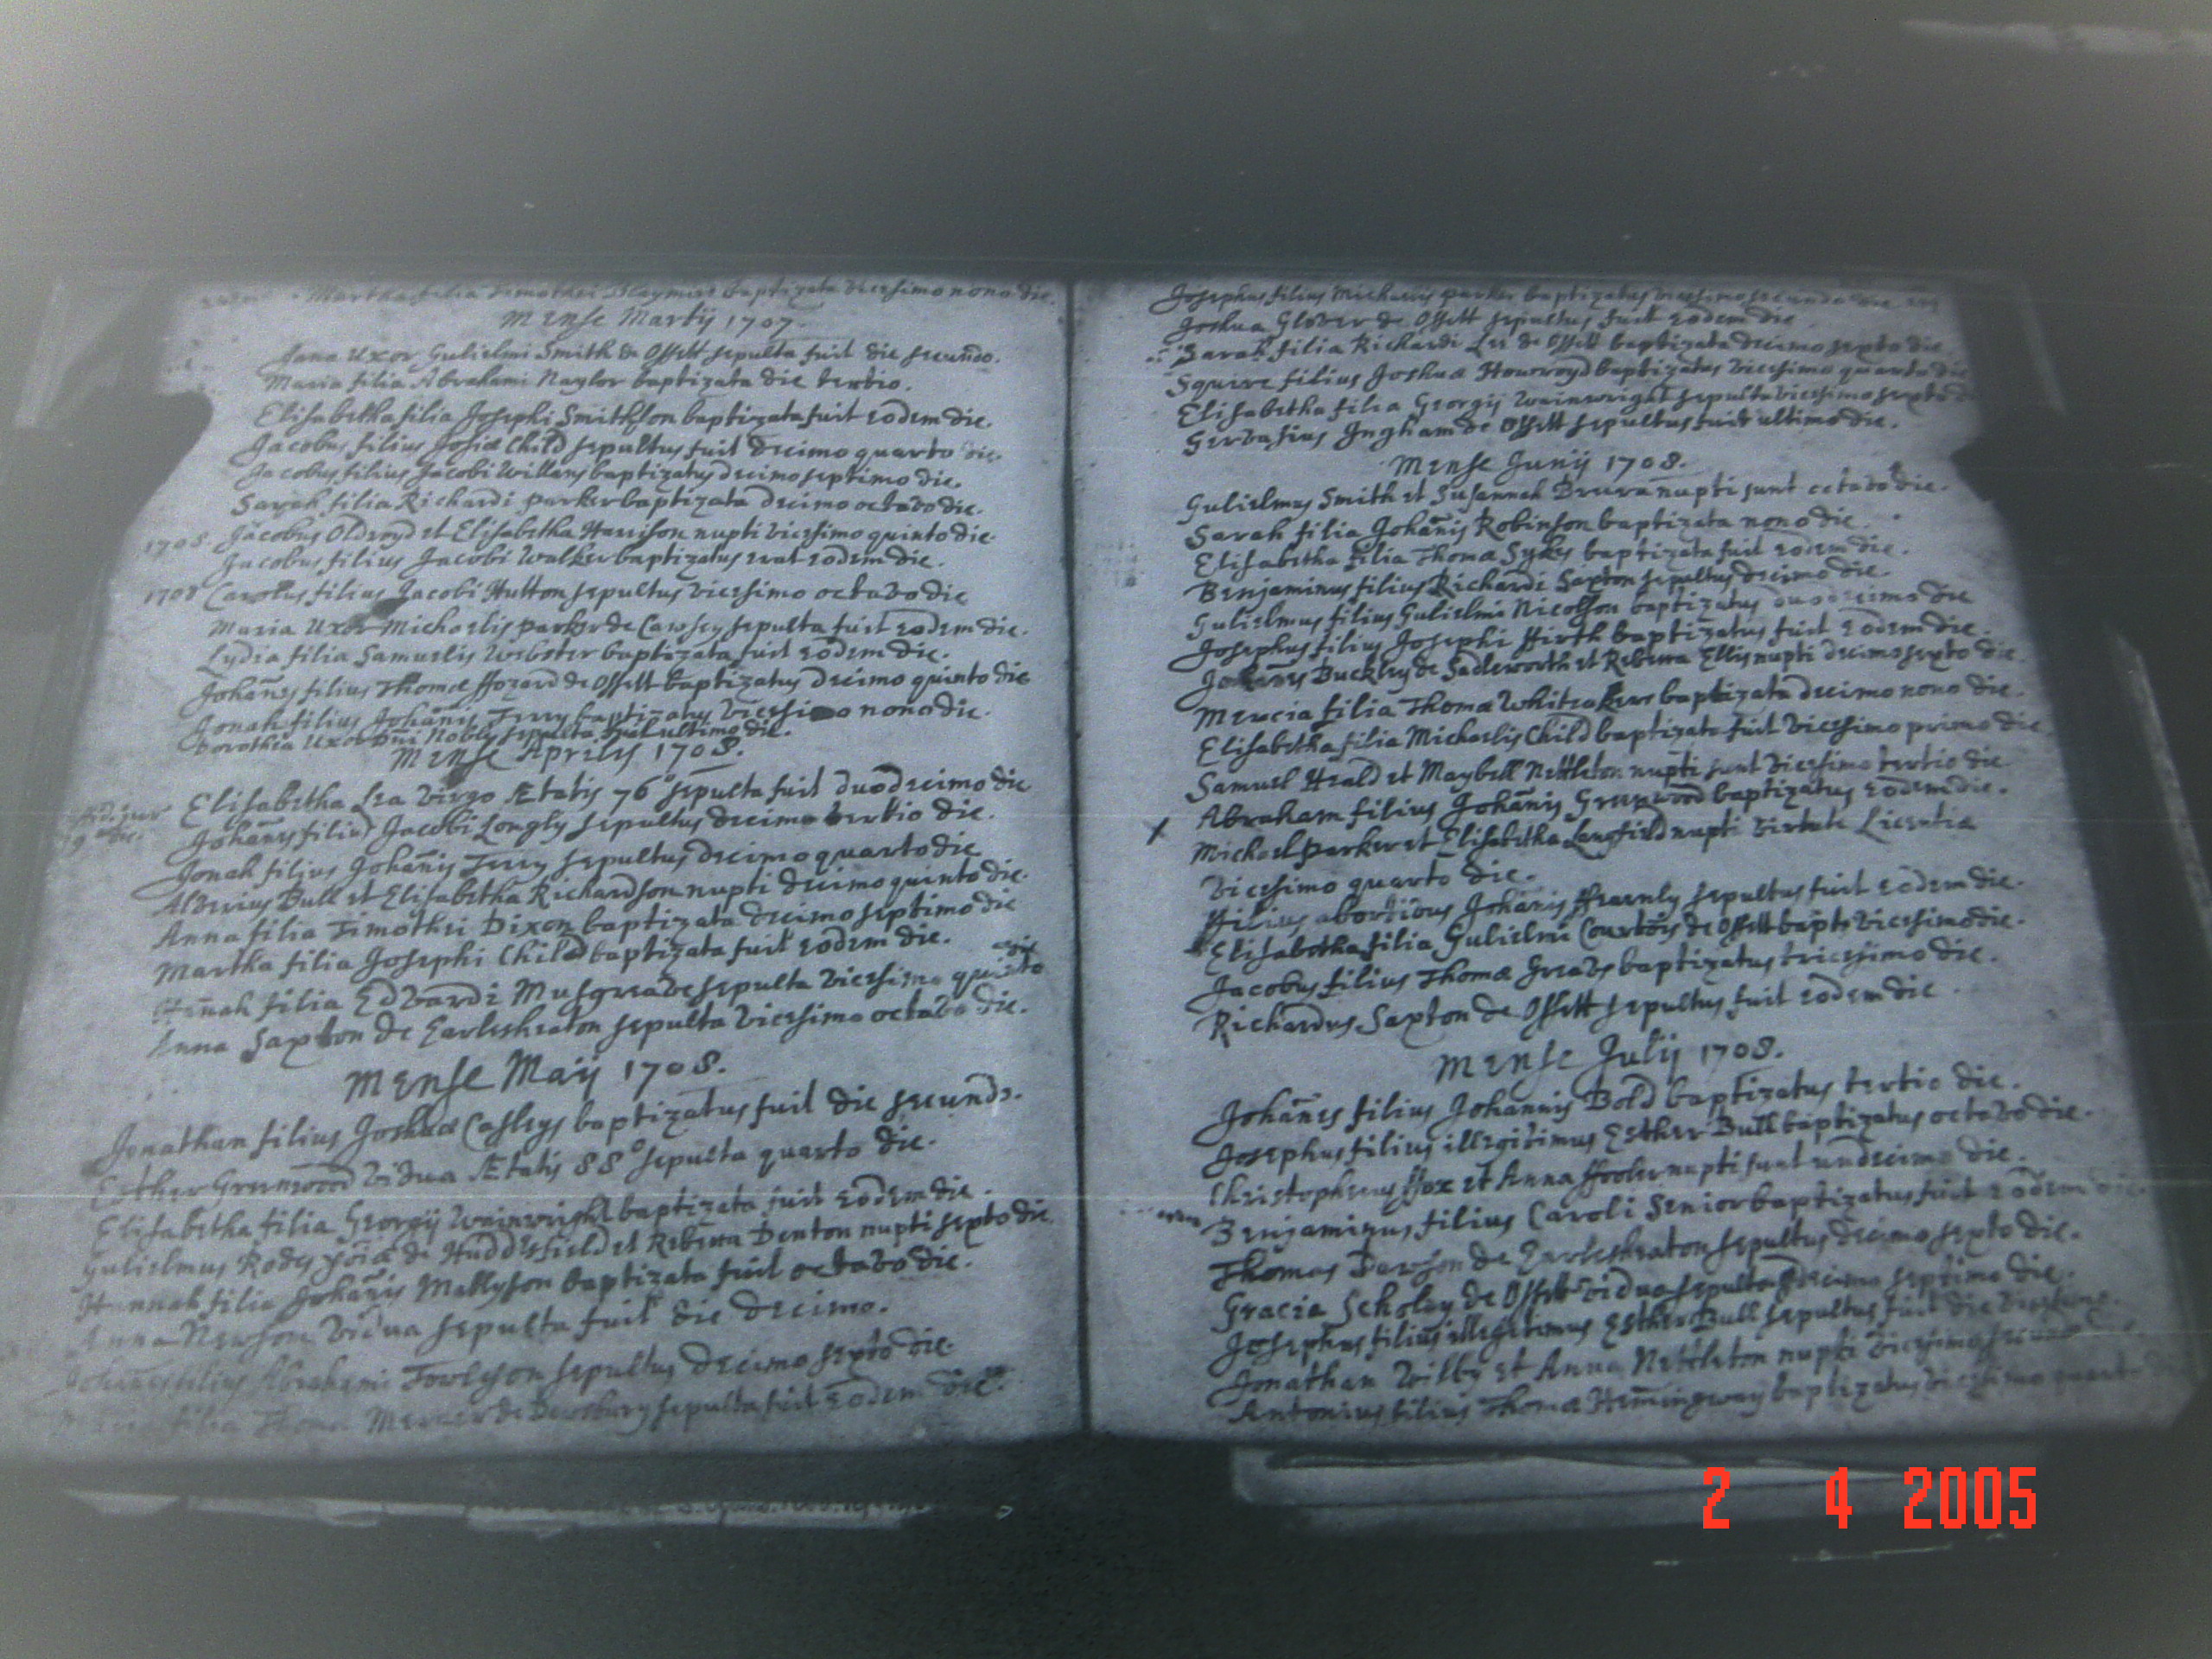 Martha filia Timothei baptizata vicesimo nono die.
Mense Martij 1707.
Jana Uxor Gulielmi Smith de Ossett sepulta fuit die secundo.
Maria filia Abrahami Naylor baptizata die tertio.
Elisabetha filia Josephi Smithson baptizata fuit eodem die.
Jacobus filius Josiæ Child sepultus fuit decimo quarto die.
Jacobus filius Jacobi Willans baptizatus decimo septimo die.
Sarah filia Richardi Parker baptizata decimo octavo die.
1708. Jacobus Oldroyd et Elisabetha Harrison nupti vicesimo quinto die
Jacobus filius Jacobi Walker baptizatus erat eodem die.
1708 Carolus filius Jacobi Hutton sepultus vicesimo octavo die
Maria Uxor Michaelis Parker de Cawsey sepulta fuit eodem die.
Lydia filia Samuelis Webster baptizata fuit eodem die.
Johañes filius Thomæ Hozard de Ossett baptizatus decimo quinto die
Jonah filius Johañis Terry baptizatus vicesimo nono die.
Dorothea Uxor Dñi Noble sepulta erat ultimo die.
Mense Aprilis 1708.
Elisabetha Lea virgo Ætatis 76° sepulta fuit duodecimo die
Johañes filius Jacobi Longly sepultus decimo tertio die.
Jonah filius Johañis Terry sepultus decimo quarto die
Alverius Bull et Elisabetha Richardson nupti decimo quinto die.
Anna filia Timothei Dixon baptizata decimo septimo die
Martha filia Josephi Child baptizata fuit eodem die.
Hañah filia Edvardi Musgreave sepulta vicesimo quinto
Anna Saxton de Earlesheaton sepulta vicesimo octavo die.
Mense Maij 1708.
Jonathan filius Joshuæ Casleys baptizatus fuit die secundo.
Esther Greenwood vidua Ætatis 88° sepulta quarto die.
Elisabetha filia Georgij Wainwright baptizata fuit eodem die.
Gulielmus Rodes de Huddersfield et Rebecca Denton nupti sexto die.
Hannah filia Johañis Mallyson baptizata fuit octavo die.
Anna Newson vidua sepulta fuit die decimo.
Johañes filius Abrahami Towleson sepultus decimo sexto die.
filia Thomæ Mercer de Dewsbury sepulta fuit eodem die.
Josephus filius Michaelis Parker baptizatus vicesimo secundo die
Joshua Glover de Ossett sepultus fuit eodem die
Sarah filia Richardi Lee de Ossett baptizata decimo sexto die
Squire filius Joshuæ Howroyd baptizatus vicesimo quarto die
Elisabetha filia Georgij Wainwright sepulta vicesimo sexto
Gervasius Ingham de Ossett sepultus fuit ultimo die.
Mense Junij 1708.
Gulielmus Smith et Susannah nupti sunt octavo die.
Sarah filia Johañis Robinson baptizata nono die.
Elisabetha filia Thomæ Sykes baptizata fuit eodem die.
Benjaminus filius Richardi Saxton sepultus decimo die.
Gulielmus filius Gulielmi Nicolson baptizatus duodecimo die
Josephus filius Josephi Hirth baptizatus fuit eodem die.
Johañes Buckley de Sadleworth et Rebecca Ellis nupti decimo sexto die.
Mercia filia Thomæ Whiteakers baptizata decimo nono die.
Elisabetha filia Michaelis Child baptizata fuit vicesimo primo die
Samuel Heald et Maybell Nettleton nupti sunt vicesimo tertio die
Abraham filius Johañis Greenwood baptizatus eodem die.
Michael Parker et Elisabetha Langfield nupti virtute Licentiæ
vicesimo quarto die.
Filius abortivus Johañis Fearnly sepultus fuit eodem die.
Elisabetha filia Gulielmi Courtois de Ossett bapt: vicesimo die.
Jacobus filius Thomæ Greave baptizatus tricesimo die.
Richardus Saxton de Ossett sepultus fuit eodem die
Mense Julij 1708.
Johañes filius Johannis Bold baptizatus tertio die.
Josephus filius illegitimus Esther Bull baptizatus octavo die.
Christopherus Fox et Anna Fowler nupti sunt undecimo die.
Benjaminus filius Caroli Senior baptizatus fuit eodem die.
Thomas Dawson de Earlesheaton sepultus decimo sexto die.
Gracia Scholey de Ossett vidua sepulta decimo septimo die.
Josephus filius illegitimus Esther Bull sepultus fuit die vicesimo.
Jonathan Wilby et Anna Nettleton nupti vicesimo secundo
Antonius filius Thomæ Hem̃ingway baptizatus vicesimo quarto
2 4 2005